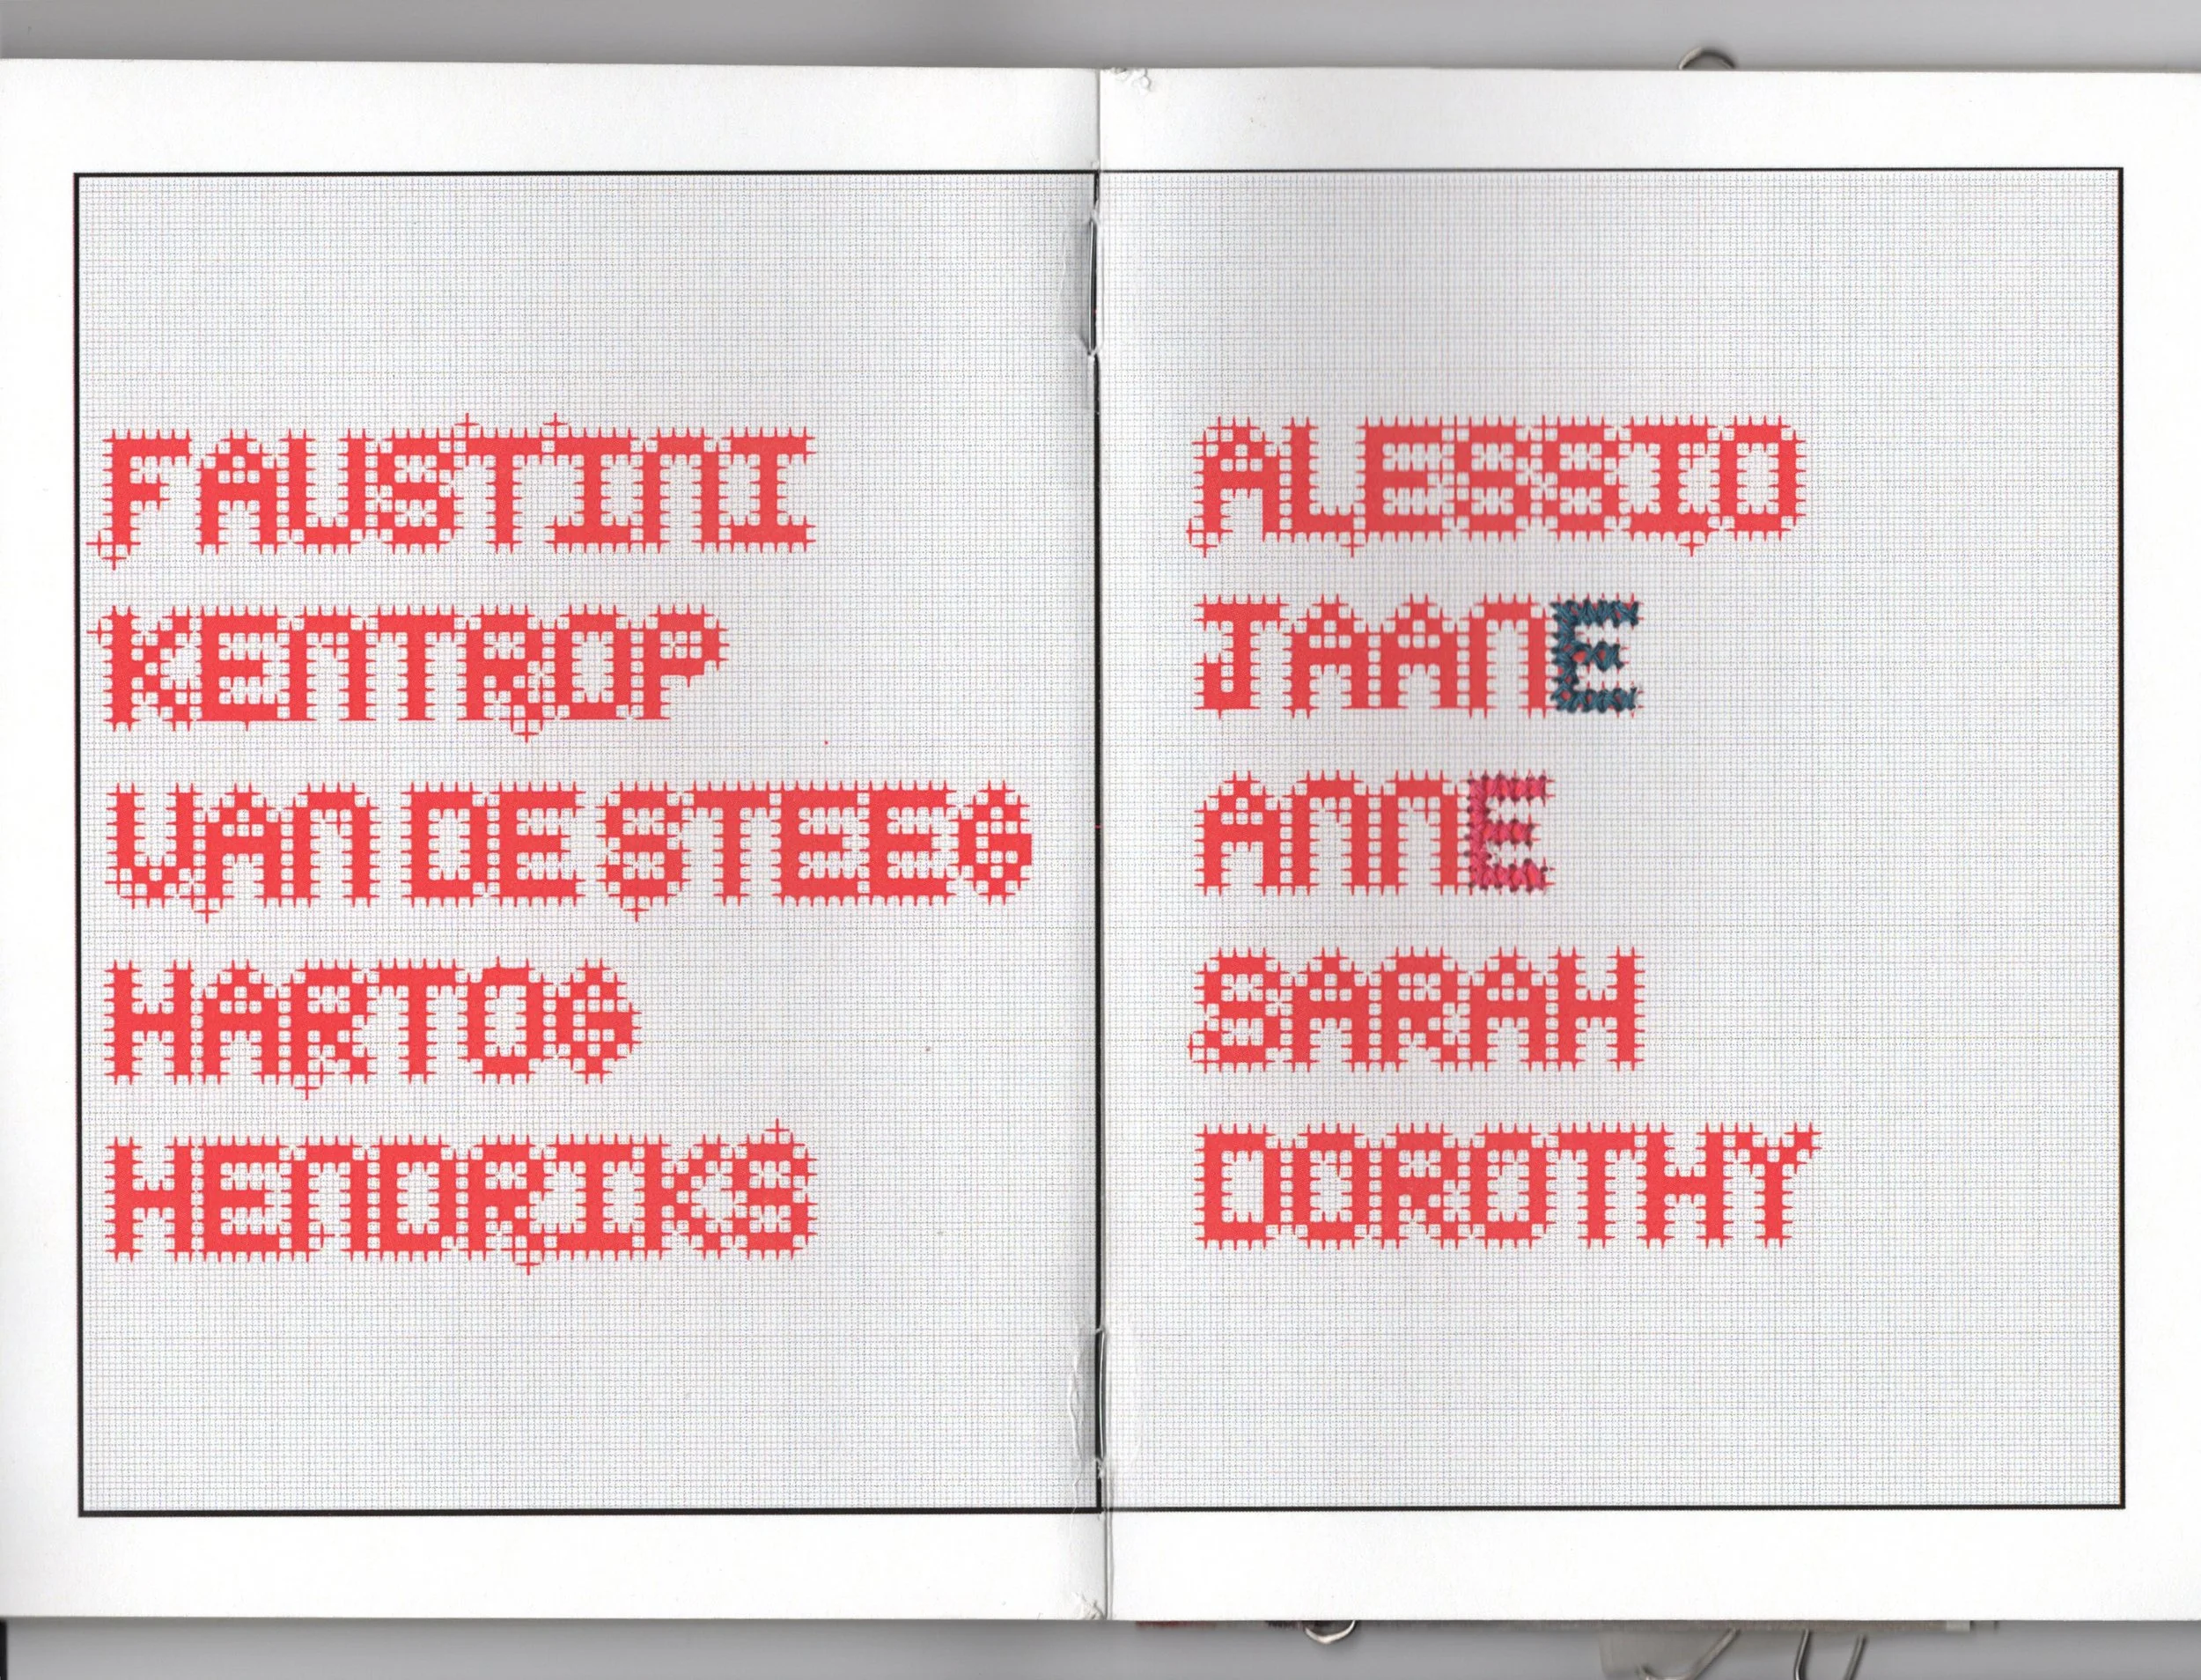 FAUSTINI
KENTROP
VAN DE STEEG
HARTOG
HENDRIKS
ALESSIO
JAANE
ANNE
SARAH
DOROTHY